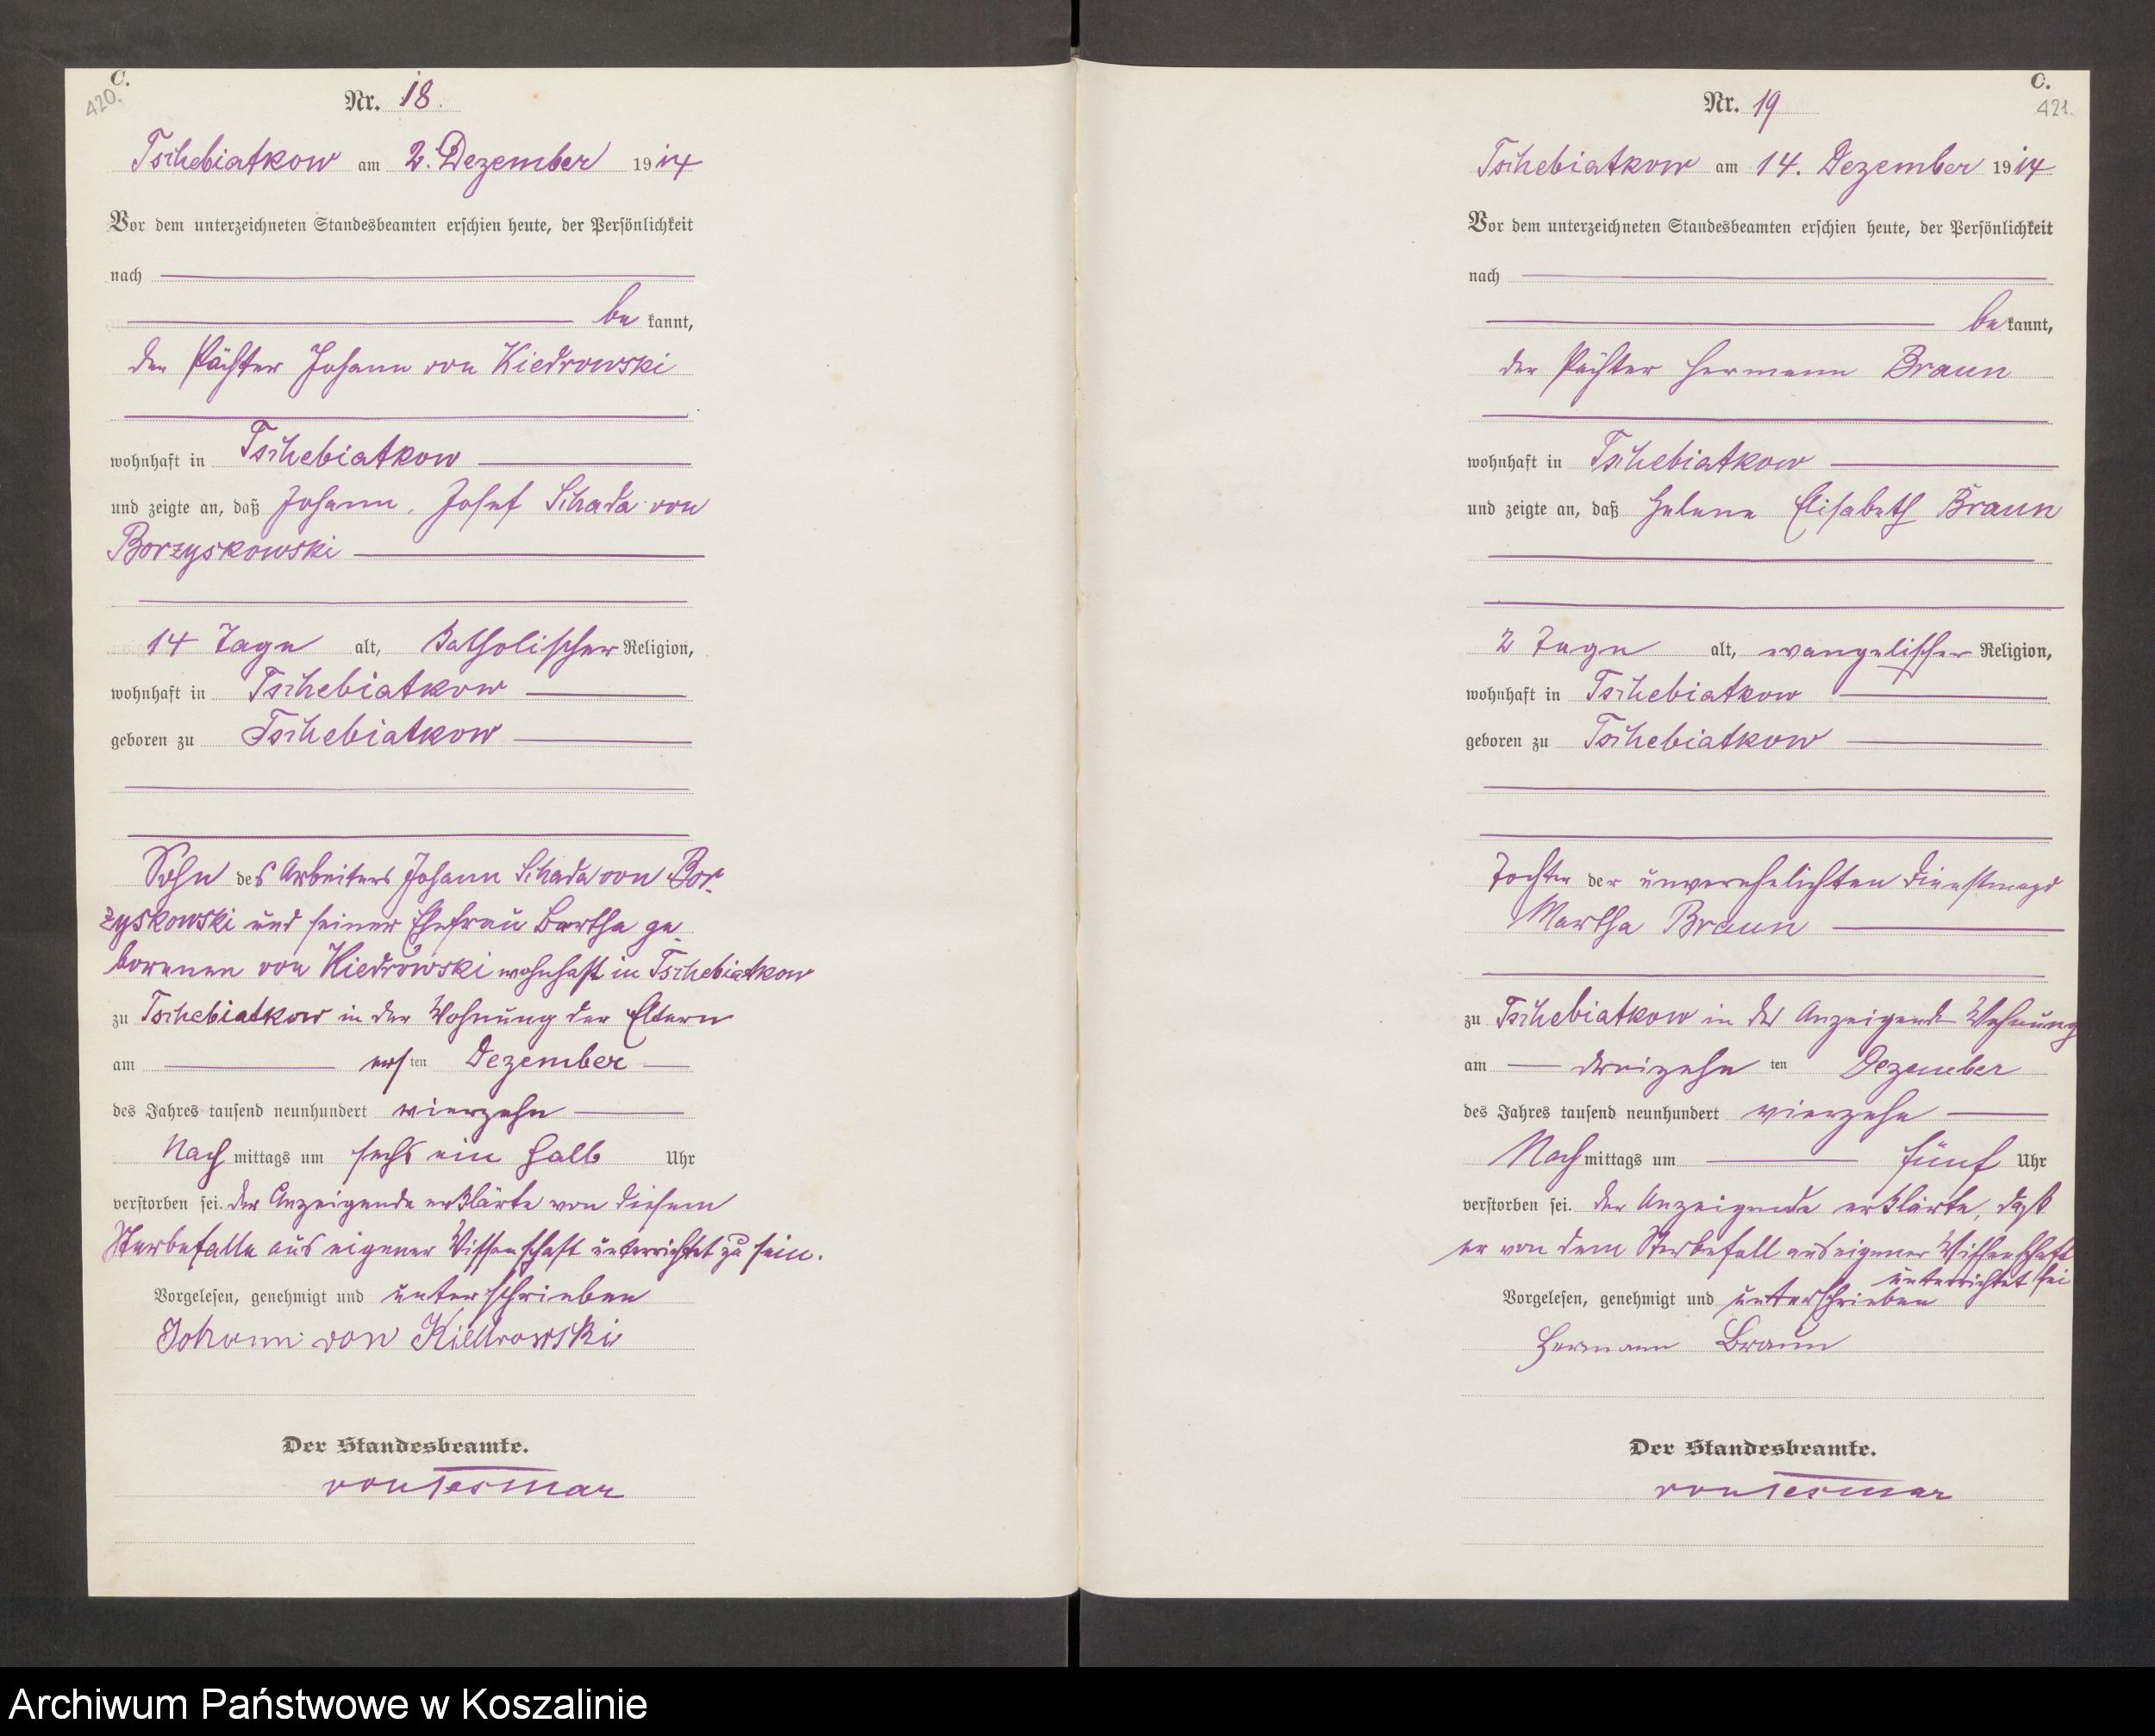 C.
420.
Nr. 18.
Tschebiatkow am 2. Dezember 1914
Vor dem unterzeichneten Standesbeamten erschien heute, der Persönlichkeit
nach
be kannt,
der Pächter Johann von Kiedrowski
wohnhaft in Tschebiatkow
und zeigte an, daß Johann, Josef Schada von
Borzyskowski
14 Tage alt, katholischer Religion,
wohnhaft in Tschebiatkow
geboren zu Tschebiatkow
Sohn des Arbeiters Johann Schada von Bor-
zyskowski und seiner Ehefrau Bertha ge-
borenen von Kiedrowski wohnhaft in Tschebiatkow
zu Tschebiatkow in der Wohnung der Eltern
am ersten Dezember
des Jahres tausend neunhundert vierzehn
Nach mittags um sechs ein halb Uhr
verstorben sei. Der Anzeigende erklärte von diesem
Sterbefalle aus eigener Wissenschaft unterrichtet zu sein.
Vorgelesen, genehmigt und unterschrieben
Johann von Kiedrowski
Der Standesbeamte.
von Tesmar
C.
421.
Nr. 19
Tschebiatkow am 14. Dezember 1914
Vor dem unterzeichneten Standesbeamten erschien heute, der Persönlichkeit
nach
be kannt,
der Pächter Hermann Braun
wohnhaft in Tschebiatkow
und zeigte an, daß Helene Elisabeth Braun
2 Tage alt, evangelischer Religion,
wohnhaft in Tschebiatkow
geboren zu Tschebiatkow
Tochter der unverehelichten Dienstmagd
Martha Braun
zu Tschebiatkow in des Anzeigenden Wohnung
am dreizehn ten Dezember
des Jahres tausend neunhundert vierzehn
Nach mittags um fünf Uhr
verstorben sei. Der Anzeigende erklärte, daß
er von dem Sterbefall aus eigener Wissenschaft
unterrichtet sei
Vorgelesen, genehmigt und unterschrieben
Hermann Braun
Der Standesbeamte.
von Tesmar
Archiwum Państwowe w Koszalinie